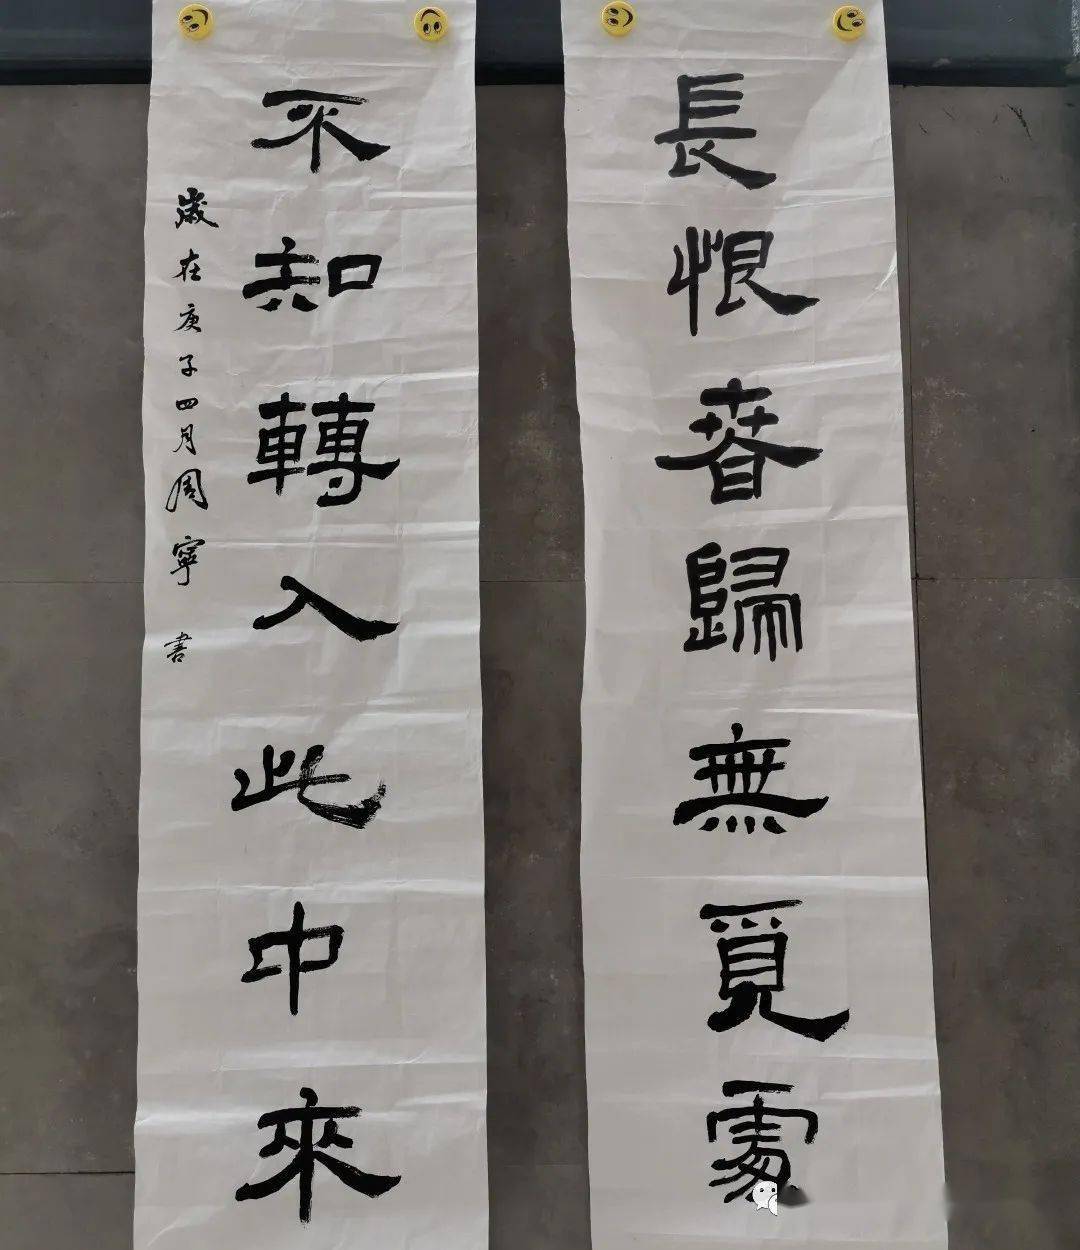 長恨春歸無覓處
不知轉入此中來
歲在庚子四月周寧書